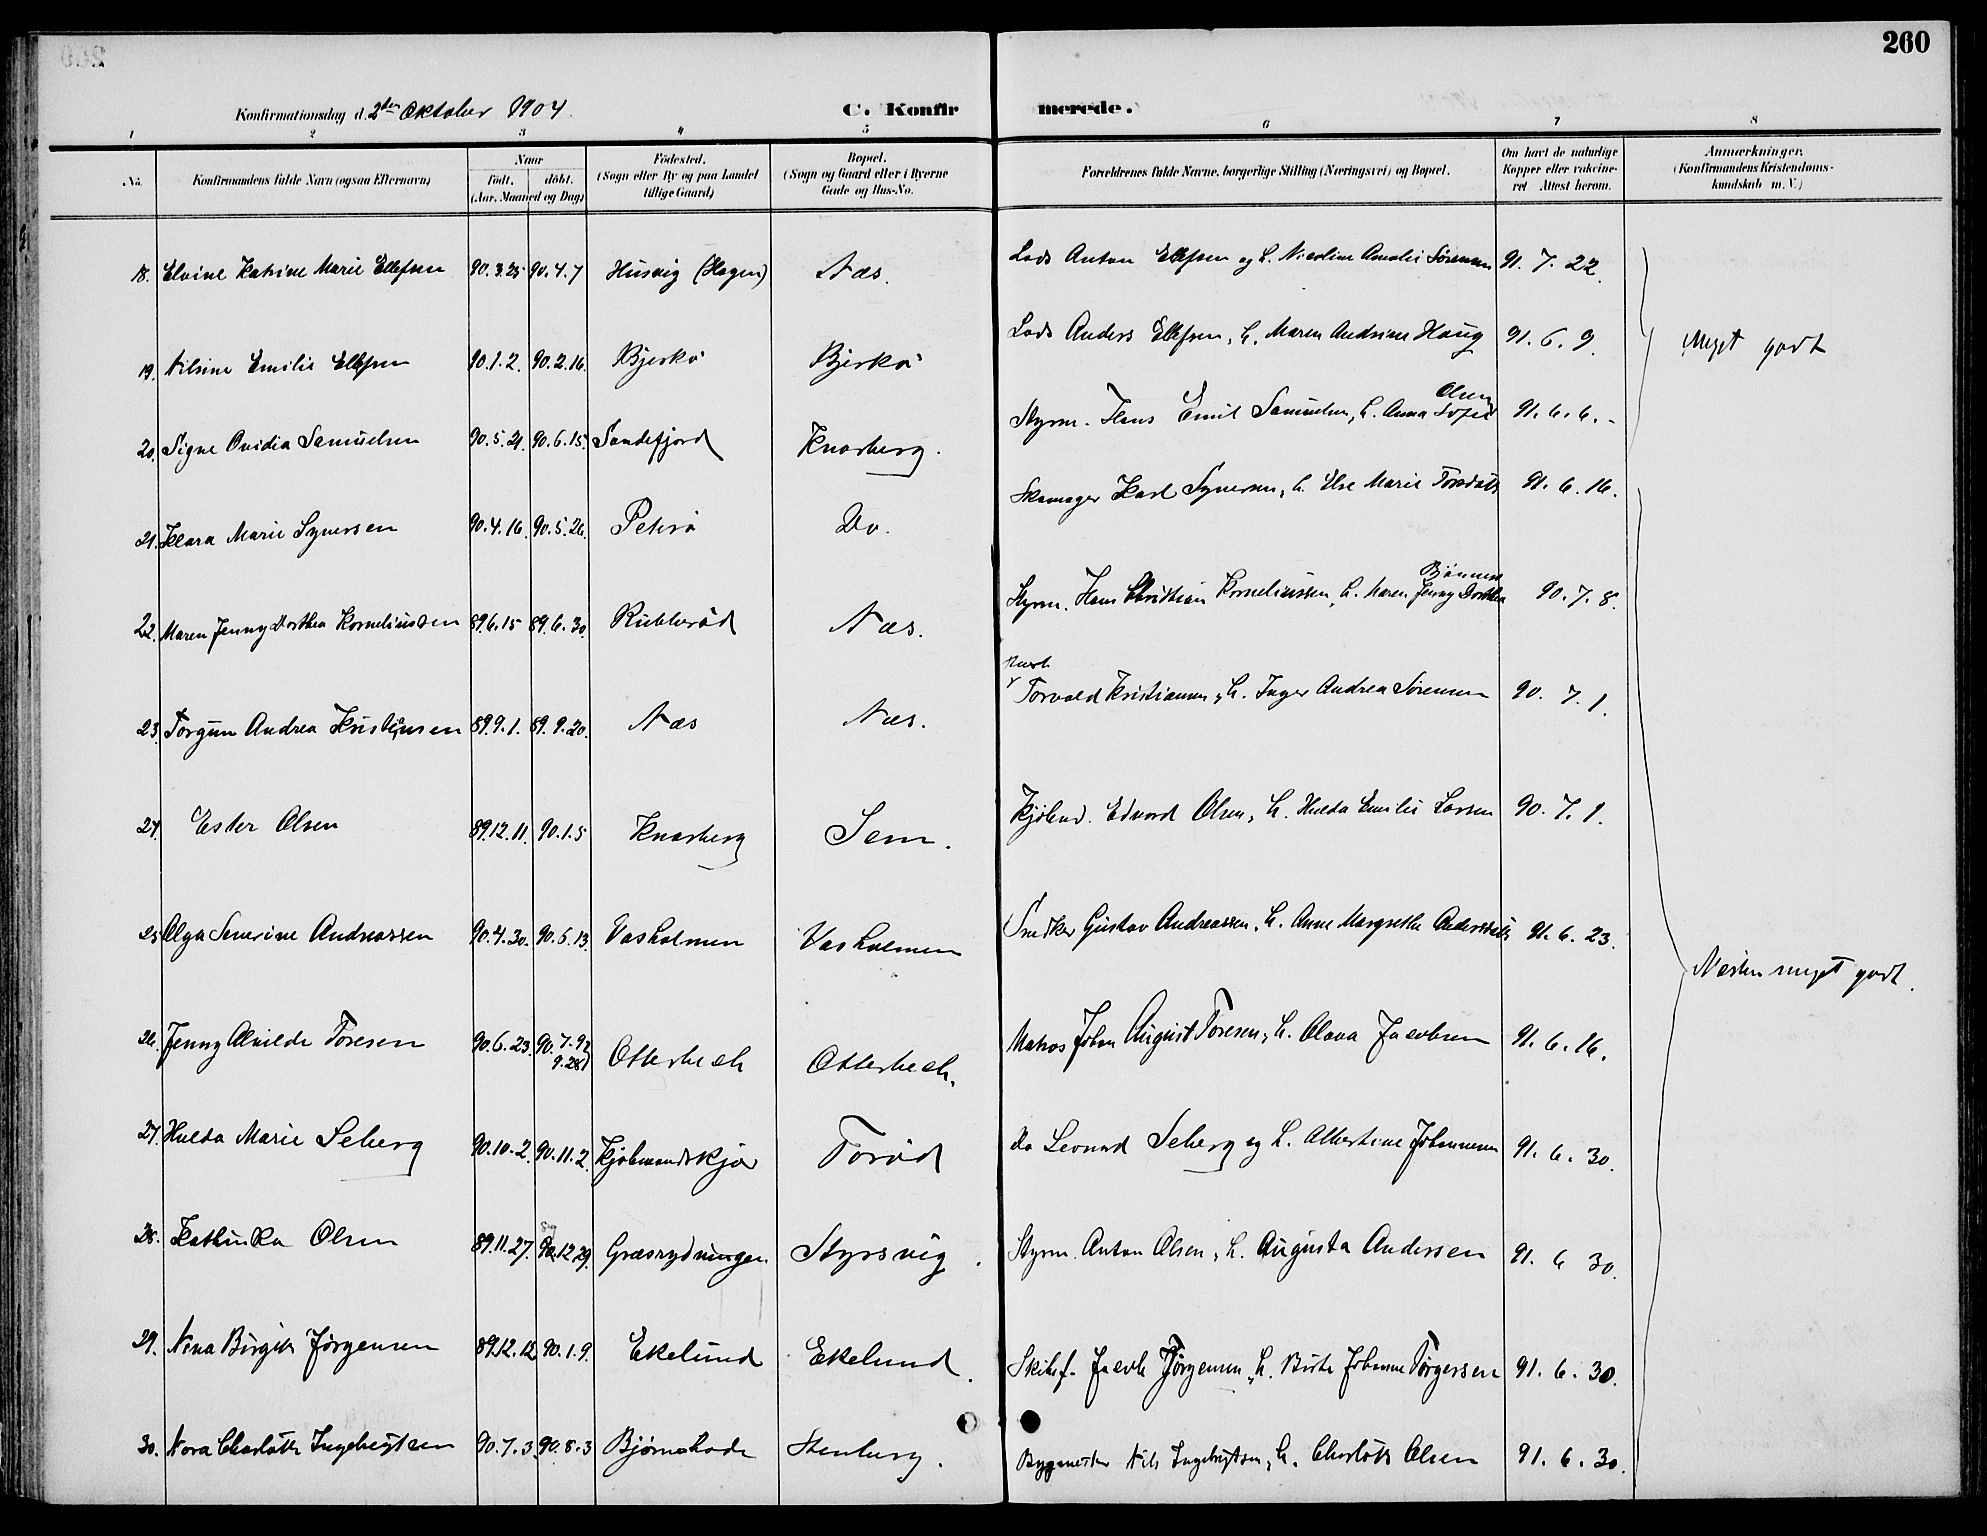 260
Konfirmationsdag d. 2den Oktober 1904.
C. Konfirmerede.
1 2 3 4 5 6 7 8
No. Konfirmandens fulde Navn (ogsaa Efternavn) Naar födt. döbt. (Aar. Maaned og Dag) Födested. (Sogn eller By og paa Landet tillige Gaard) Bopæl. (Sogn og Gaard eller i Byerne Gade og Hus-No. Forældrenes fulde Navne, borgerlige Stilling (Næringsvei) og Bopæl. Om havt de naturlige Kopper eller vakcineret Attest herom. Anmærkninger. (Konfirmandens Kristendomskundskab m. V.)
18. Elvine Katrine Marie Ellefsen 90.3.25 90.4.7 Husvig (Hagen) Næs. Lods Anton Ellefsen og h. Nicoline Amalie Sørensen 91. 7. 22.
19. Nilsine Emilie Ellefsen 90.1.2. 90.2.16. Bjerkø Bjerkø Lods Anders Ellefsen, h. Maren Andrine Haug 91. 6. 9. Meget godt
20. Signe Ovidia Samuelsen 90.5.21. 90.6.15. Sandefjord Knarberg. Styrm. Hans Emil Samuelsen, h. Anna Sofie Olsen 91. 6. 6.
21. Klara Marie Syversen 90.4.16. 90.5.26. Peterø Do. Skomager Karl Syversen, h. Else Marie Torsdatr 91. 6. 16.
22. Maren Jenny Dorthea Korneliussen 89.6.15 89.6.30. Rubberød Næs. Styrm. Hans Christian Korneliussen, h. Maren Jenny Dorthea Bjønnes 90. 7. 8.
23. Torgun Andrea Kristiansen 89.9.1. 89.9.20. Næs Næs. Torvald Kristiansen, h. Inger Andrea Sørensen 90. 7. 1.
24. Ester Olsen 89.12.11. 90.1.5 Knarberg Sem. Kjøbmd. Edvard Olsen, h. Hulda Emilie Larsen 90. 7. 1.
25 Olga Severine Andreassen 90.4.30. 90.6.13. Vasholmen Vasholmen Snedker Gustav Andreassen, h. Anne Margrethe Andersdatr 91. 6. 23. Næsten meget godt.
26. Jenny Alvilde Toresen 90.6.23. 90.7.9 9.28 Otterbech Otterbech. Matros Johan August Toresen, h. Olava Jacobsen 91. 6. 16.
27. Hulda Marie Seberg 90.10.2. 90.11.2. Kjøbmandskjær Torød Do Leonard Seberg og h. Albertine Johannesen 91. 6. 30.
28. Kathinka Olsen 89.11.27. 12.29. Græsrydningen Styrsvig. Styrm. Anton Olsen, h. Augusta Andersen 91. 6 30.
29. Nina Birgitte Jørgensen 89.12.12 90.1.9. Ekelund Ekelund. Skibsf. Jacob Jørgensen, h. Berte Johanne Torgersen 91. 6. 30.
30. Nora Charlotte Ingebrigtsen 90.7.3 90.8.3 Bjørnebode Stenberg. Bygmester Nils Ingebrigtsen, h. Charlotte Olsen 91. 6. 30.